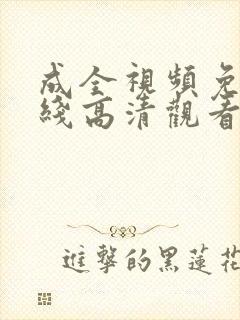 成全視頻免
綫高清觀看
進擊的黑蓮花